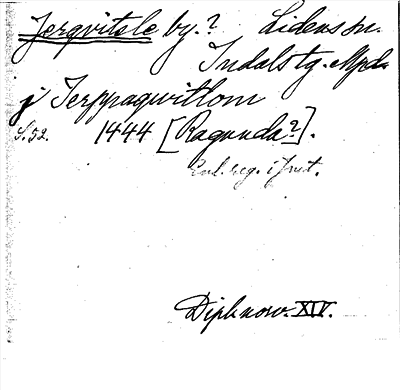 Jerqvitsle by.? Lidens sn.
Indals tg. Mpd.
j Jerppaqwitlom
S. 52. 1444 [Ragunda?].
Enl. reg. i Just.
Dipl. norv. XIV.